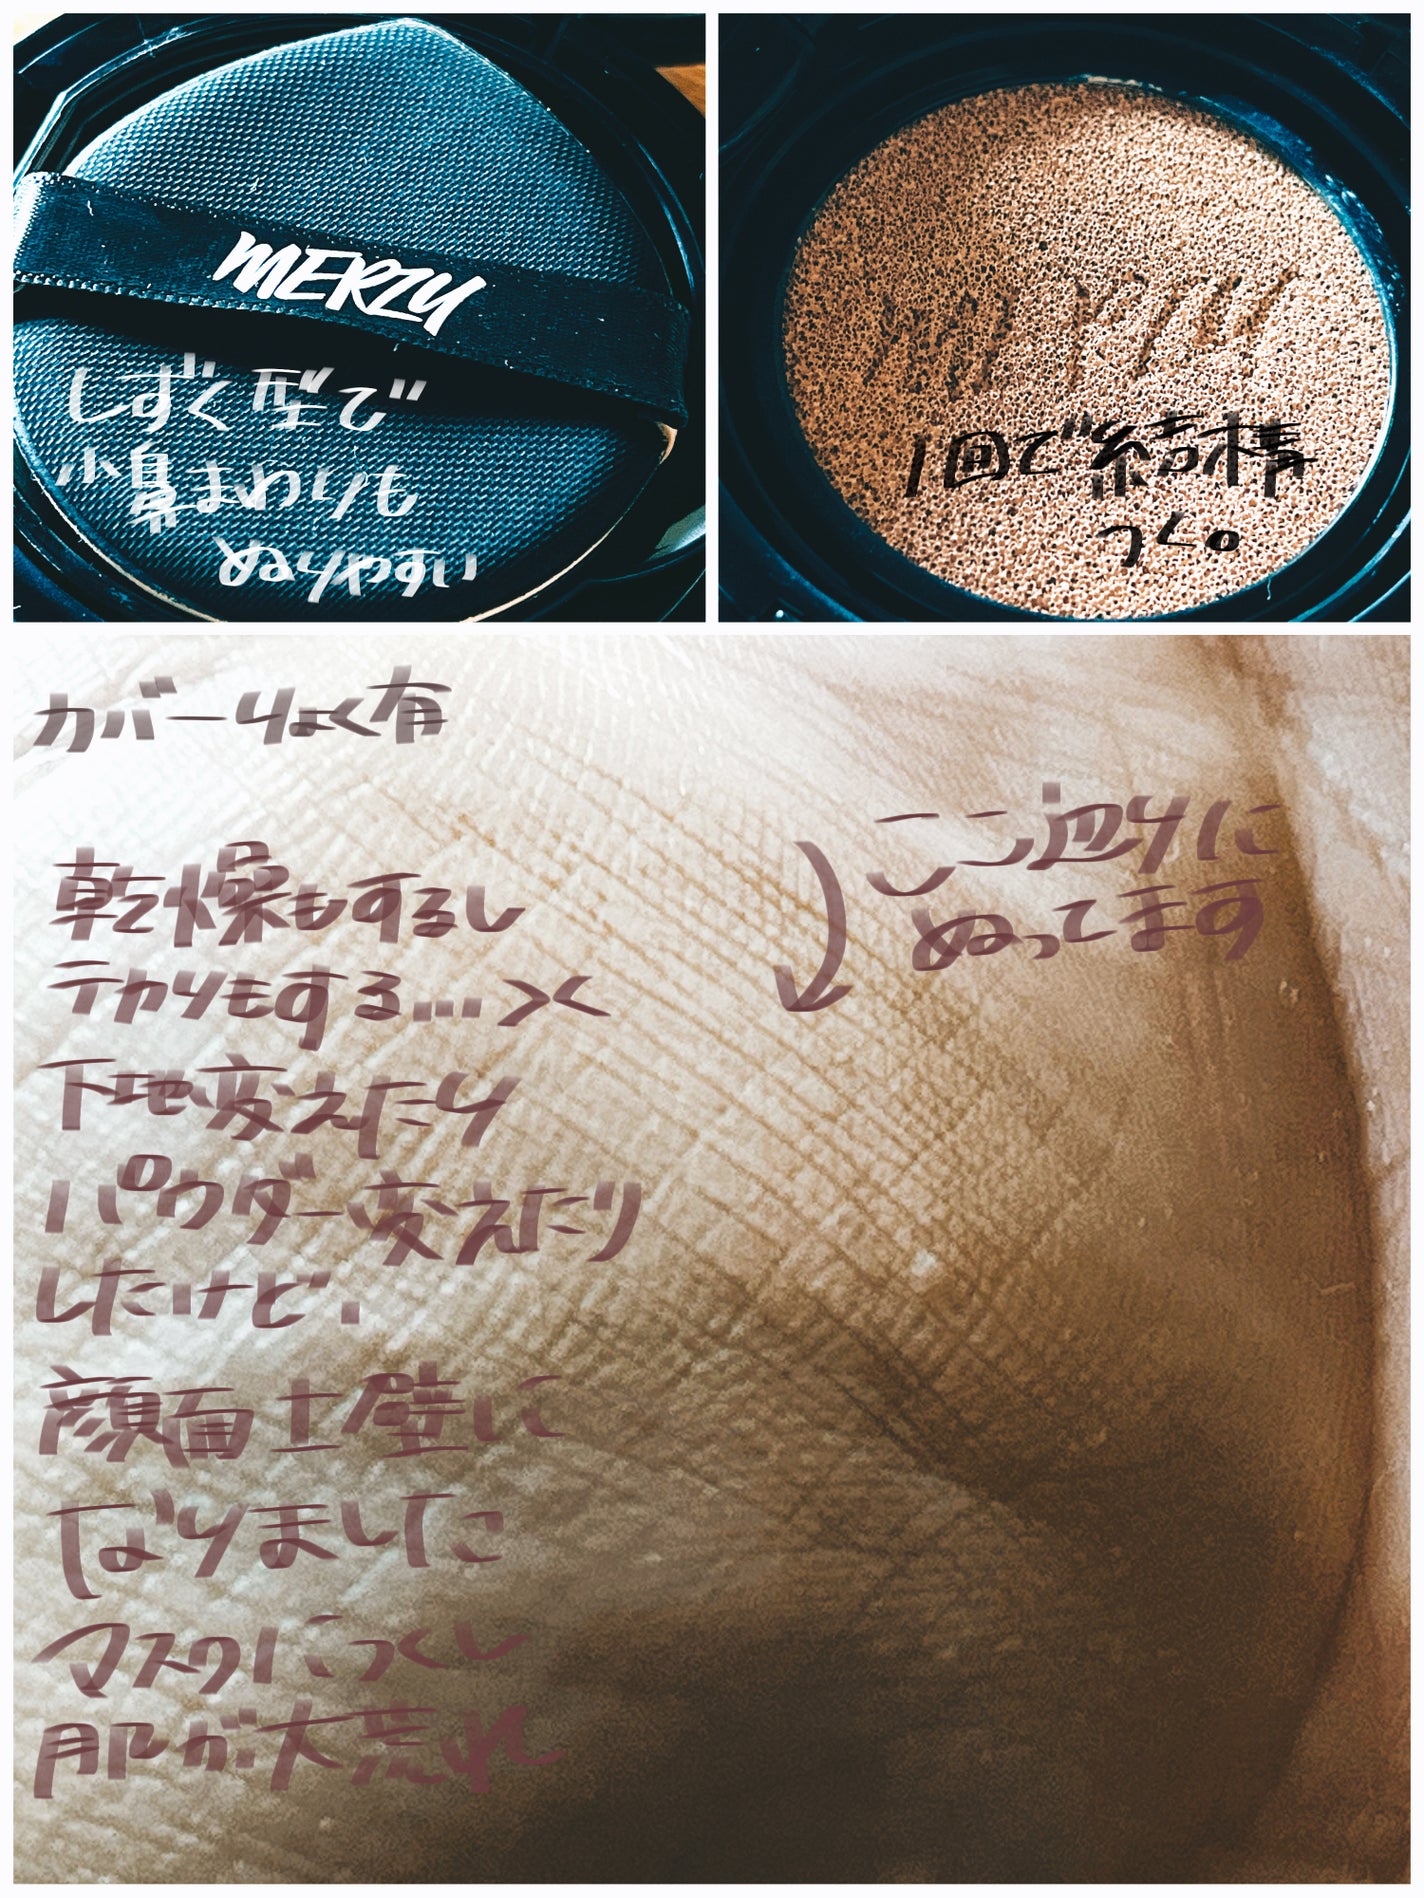 MERZY
しずく型で
小鼻まわりも
ぬりやすい
1回で結構
つく。
カバーりょく有
ここ辺りに
ぬってます
乾燥もするし
テカりもする....><
下地変えたり
パウダー変えたり
したけど、
顔面土壁に
なりました
マスクにつくし
肌が大荒れ